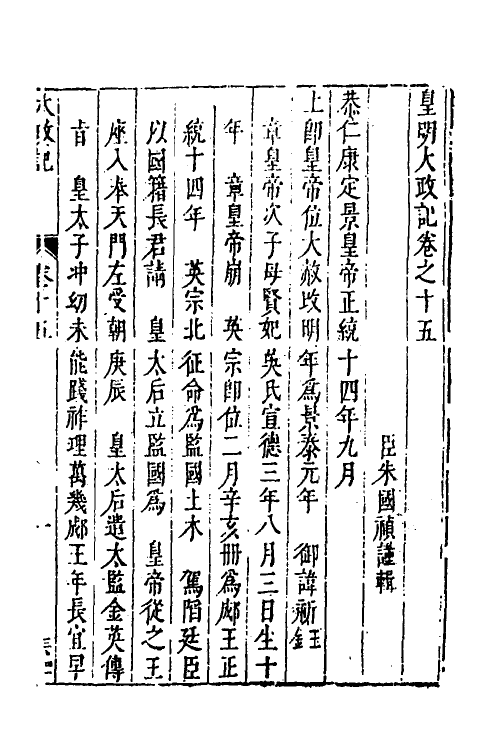 皇明大政記卷之十五
臣朱國禎謹輯
恭仁康定景皇帝正統十四年九月
上即皇帝位大赦改明年爲景泰元年　御諱祁鈺
章皇帝次子母賢妃吳氏宣德三年八月三日生十
年　章皇帝崩　英宗即位二月辛亥冊爲郕王正
統十四年　英宗北征命爲監國土木　駕陷廷臣
以國籍長君請　皇太后立監國爲　皇帝從之王
座入奉天門左受朝庚辰　皇太后遣太監金英傳
旨　皇太子冲幼未能踐祚理萬幾郕王年長宜早
大政記　卷十五　一